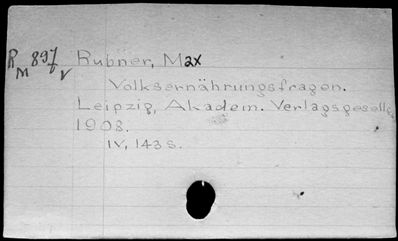 R 897 Rubner, Max
M V
Volksernährungsfragen.
Leipzig, Akadem. Verlagsgesells.
1908.
IV, 143 s.